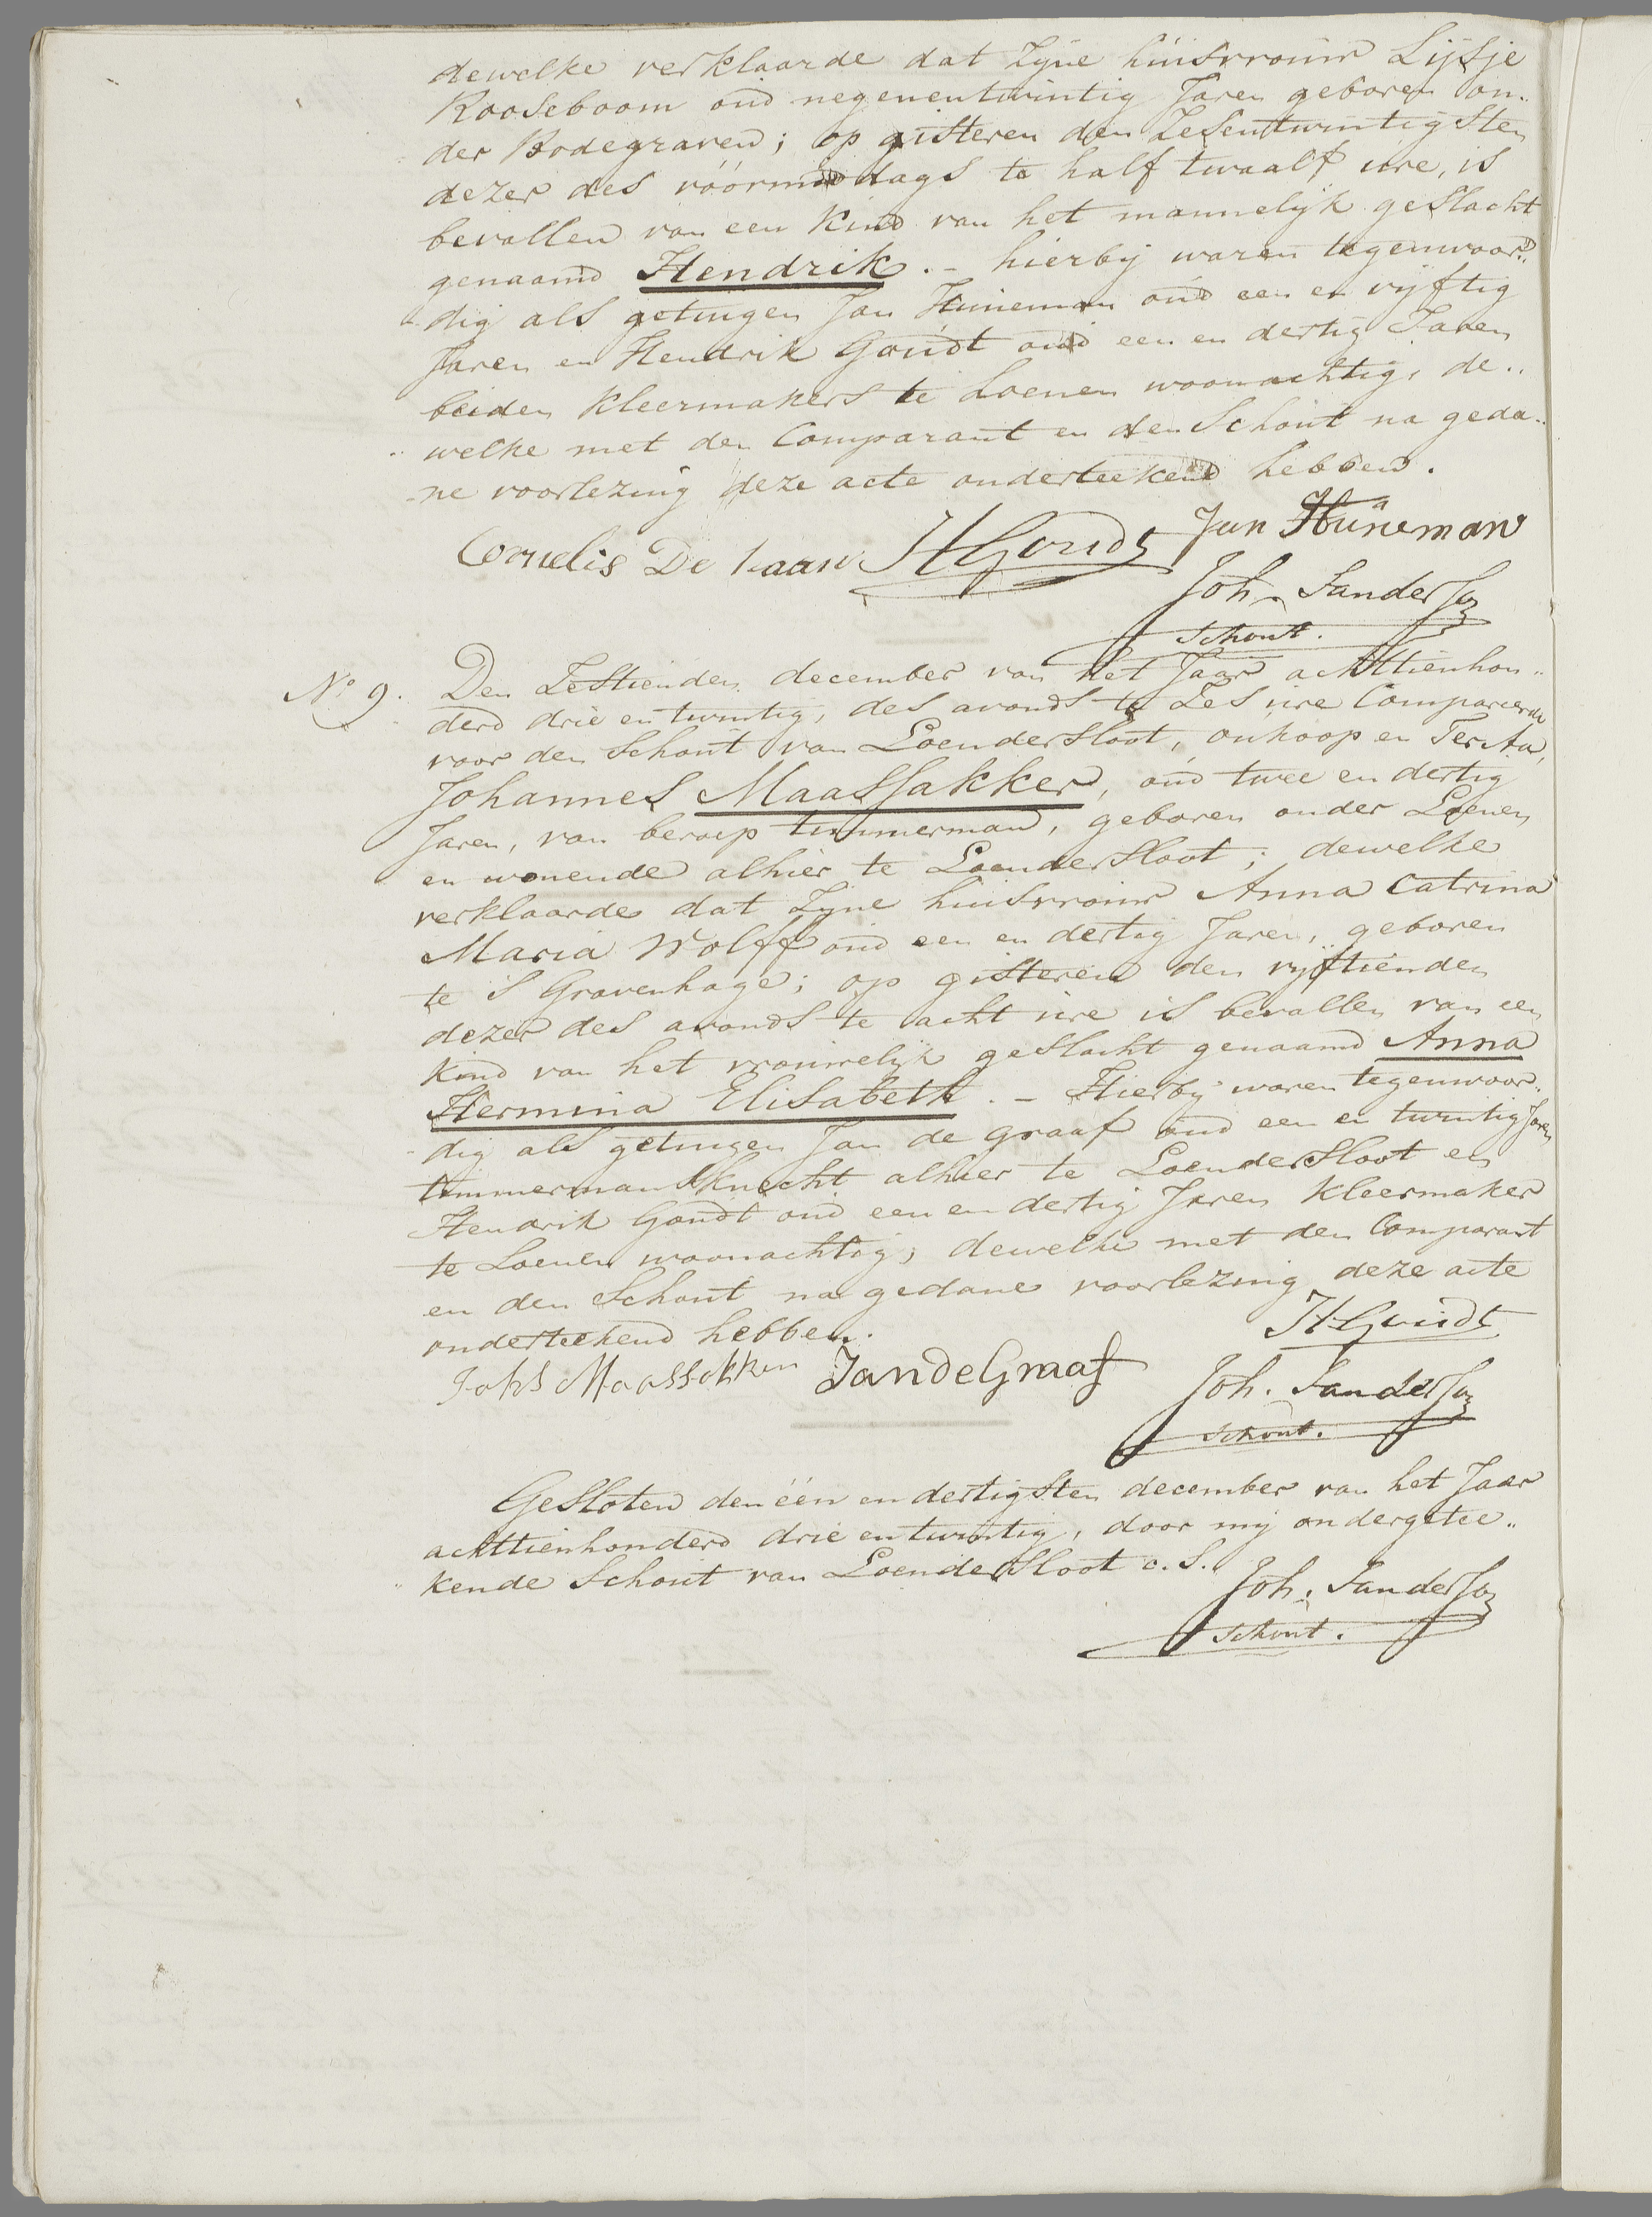 dewelke verklaarde dat Zijne huisvrouw Lijsje
Rooseboom oud negenentwintig Jaren geboren on„
der Bodegraven; op gisteren den Zesentwintigsten
dezer des vóórmiddags te half twaalf ure, is
bevallen van een Kind van het mannelijk geslacht
genaamd Hendrik. – hierbij waren tegenwoor„
dig als getuigen Jan Huneman oud een en vijftig
Jaren en Hendrik Goudt oud een en dertig Jaren
beiden Kleermakers te Loenen woonachtig, de„
welke met den Comparant en den Schout na geda„
ne voorlezing deze acte onderteekend hebben.
Cornelis De haan HGoudt Jan Huneman
Joh. Sanders Jz
Schout.
No 9. Den Zestienden december van het Jaar achttienhon„
derd drie en twintig, des avonds te Zes ure Compareerde
voor den Schout van Loendersloot, onkoop en Ter Aa,
Johannes Maassakker, oud twee en dertig
Jaren, van beroep timmerman, geboren onder Loenen
en wonende alhier te Loendersloot; dewelke
verklaarde dat Zijne huisvrouw Anna Catrina
Maria Wolff oud een en dertig Jaren, geboren
te S Gravenhage; op gisteren den vijftienden
dezer des avonds te acht ure is bevallen van een
Kind van het vrouwelijk geslacht genaamd Anna
Hermina Elisabeth. – Hierbij waren tegenwoor„
dig als getuigen Jan de Graaf oud een en twintig Jaren
timmermansknecht alhier te Loendersloot en
Hendrik Goudt oud een en dertig Jaren Kleermaker
te Loenen woonachtig; dewelke met den Comparant
en den Schout na gedane voorlezing deze acte
onderteekend hebben. HGoudt
Johs Maassakker Jan de Graaf
Joh. Sanders Jz
Schout.
Gesloten den één en dertigsten december van het Jaar
achttienhonderd drie en twintig, door mij ondergetee„
kende Schout van Loendersloot c.s. Joh. Sanders Jz
Schout.